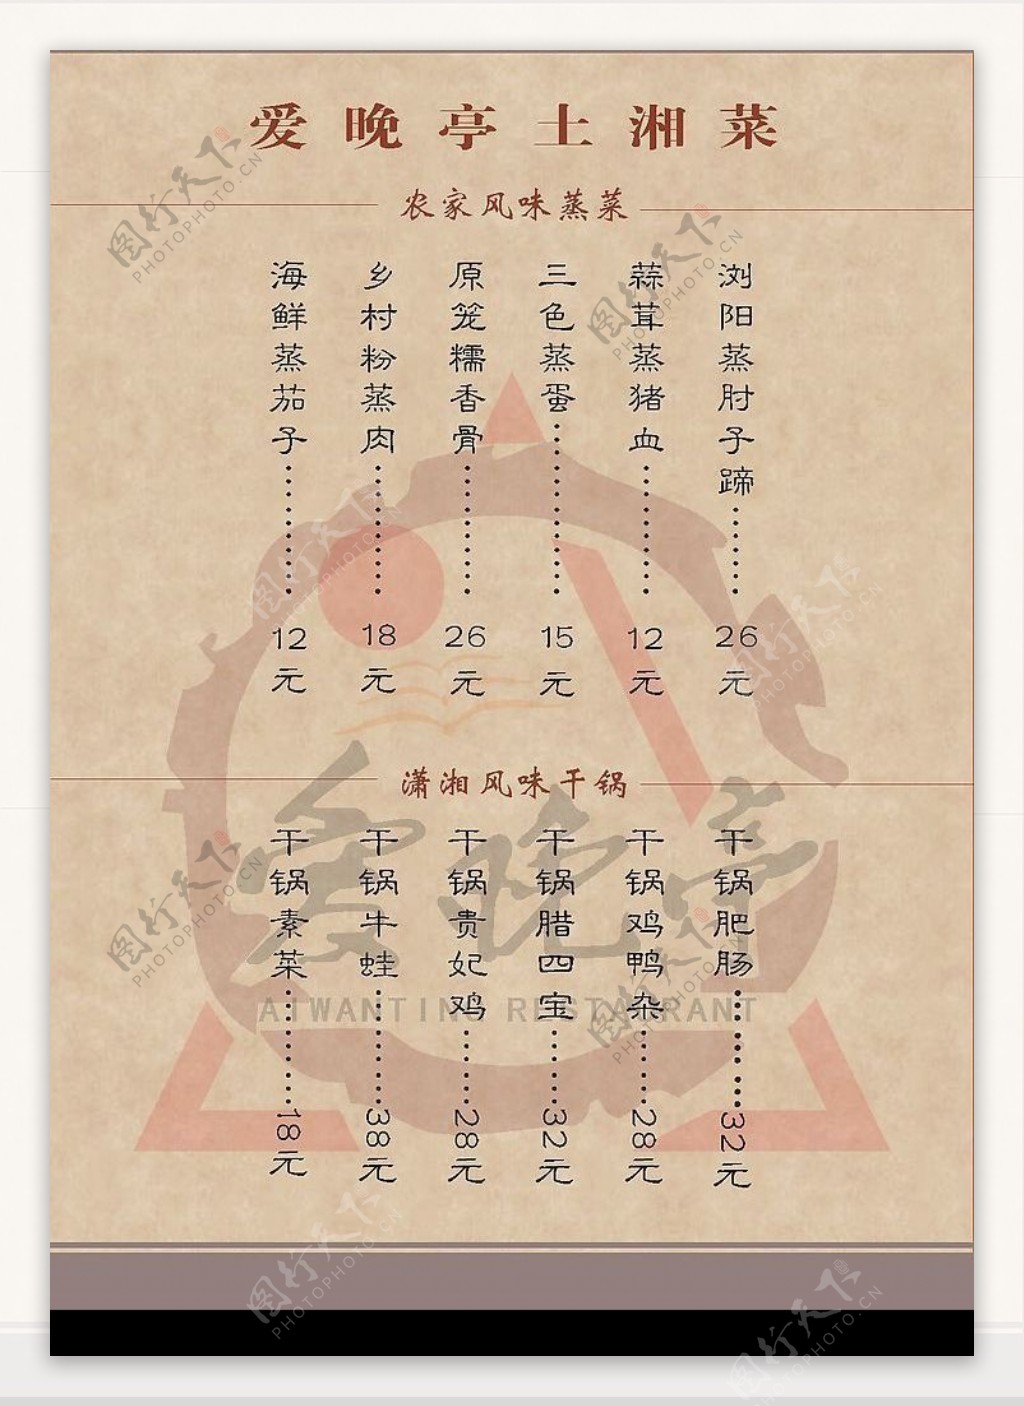 爱晚亭土湘菜
农家风味蒸菜
浏阳蒸肘子蹄………26元
蒜茸蒸猪血………12元
三色蒸蛋………15元
原笼糯香骨………26元
乡村粉蒸肉………18元
海鲜蒸茄子………12元
潇湘风味干锅
干锅肥肠………32元
干锅鸡鸭杂………28元
干锅腊四宝………32元
干锅贵妃鸡………28元
干锅牛蛙………38元
干锅素菜………18元
爱晚亭
AIWANTING RESTAURANT
图行天下
PHOTOPHOTO.CN